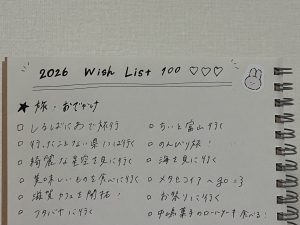 2026 Wish List 100 ♡♡♡
★ 旅・おでかけ
□ しるしばにあで旅行
□ 行ったことない県1つは行く
□ 綺麗な星空を見に行く
□ 美味しいものを食べに行く
□ 滋賀カフェを開拓!
□ に行く
□ ちいと富山行く
□ のんびり旅!
□ 海を見に行く
□ メタセコイアへ go =3
□ お祭りに行く
□ 食べる!